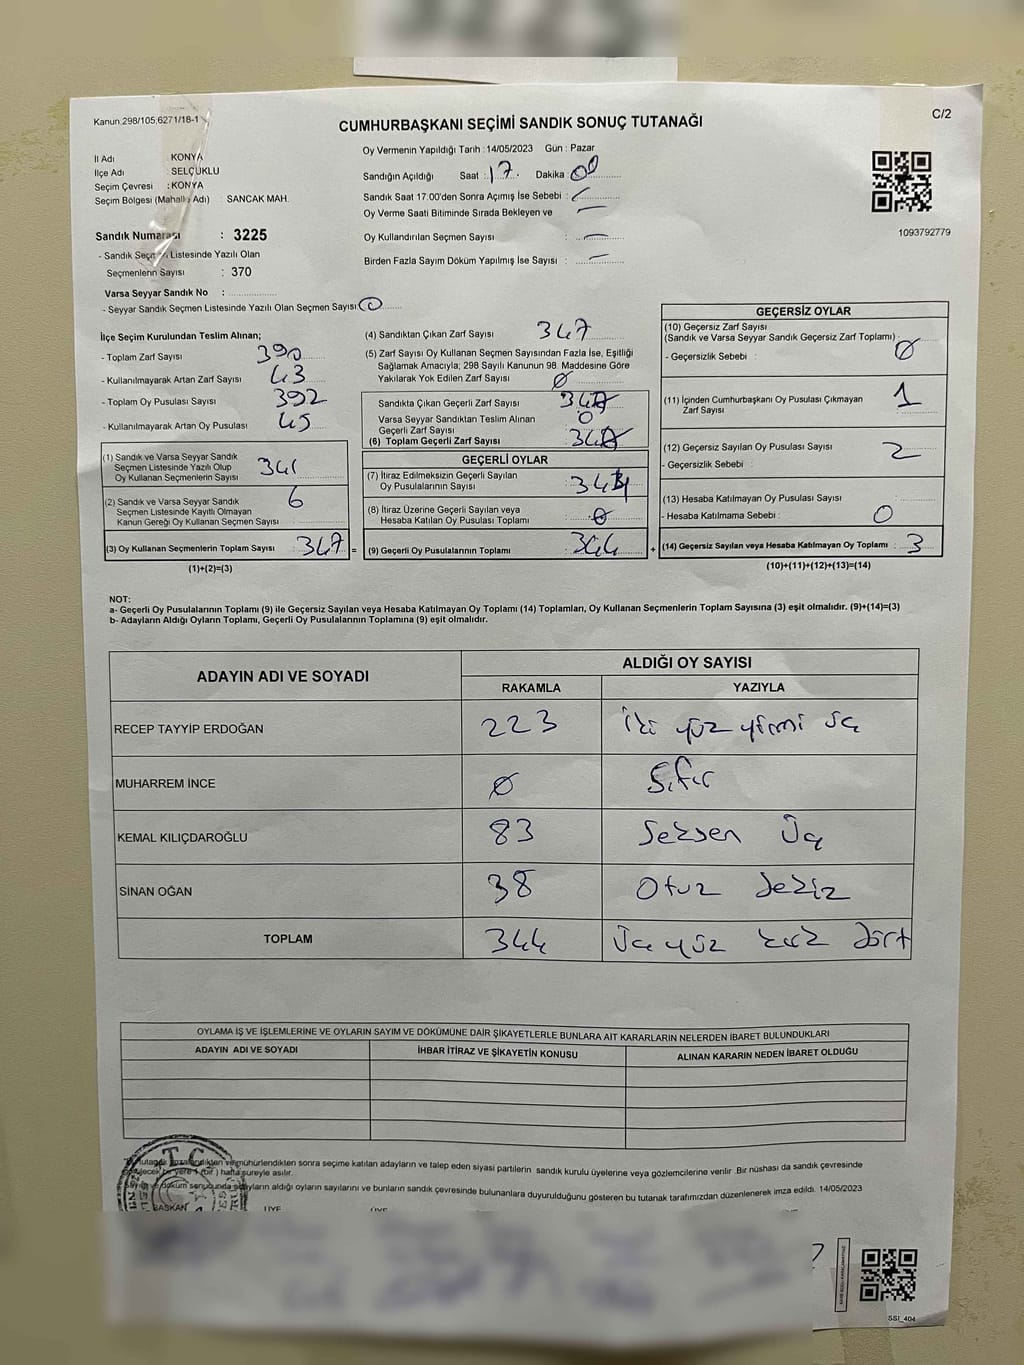 Kanun:298/105,6271/18-1
C/2
CUMHURBAŞKANI SEÇİMİ SANDIK SONUÇ TUTANAĞI
Oy Vermenin Yapıldığı Tarih :14/05/2023 Gün : Pazar
İl Adı : KONYA
İlçe Adı : SELÇUKLU
Seçim Çevresi : KONYA
Seçim Bölgesi (Mahalle Adı) : SANCAK MAH.
Sandığın Açıldığı Saat : 17 Dakika : 00
Sandık Saat 17:00'den Sonra Açımış İse Sebebi : –
Oy Verme Saati Bitiminde Sırada Bekleyen ve
Oy Kullandırılan Seçmen Sayısı : –
Birden Fazla Sayım Döküm Yapılmış İse Sayısı : –
1093792779
Sandık Numarası : 3225
- Sandık Seçmen Listesinde Yazılı Olan
Seçmenlerin Sayısı : 370
Varsa Seyyar Sandık No :
- Seyyar Sandık Seçmen Listesinde Yazılı Olan Seçmen Sayısı: 0
İlçe Seçim Kurulundan Teslim Alınan;
- Toplam Zarf Sayısı : 390
- Kullanılmayarak Artan Zarf Sayısı : 43
- Toplam Oy Pusulası Sayısı : 392
- Kullanılmayarak Artan Oy Pusulası : 45
(1) Sandık ve Varsa Seyyar Sandık
Seçmen Listesinde Yazılı Olup
Oy Kullanan Seçmenlerin Sayısı : 341
(2) Sandık ve Varsa Seyyar Sandık
Seçmen Listesinde Kayıtlı Olmayan
Kanun Gereği Oy Kullanan Seçmen Sayısı : 6
(3) Oy Kullanan Seçmenlerin Toplam Sayısı : 347 =
(1)+(2)=(3)
(4) Sandıktan Çıkan Zarf Sayısı : 347
(5) Zarf Sayısı Oy Kullanan Seçmen Sayısından Fazla İse, Eşitliği
Sağlamak Amacıyla; 298 Sayılı Kanunun 98. Maddesine Göre
Yakılarak Yok Edilen Zarf Sayısı : 0
Sandıkta Çıkan Geçerli Zarf Sayısı : 347
Varsa Seyyar Sandıktan Teslim Alınan
Geçerli Zarf Sayısı : 0
(6) Toplam Geçerli Zarf Sayısı : 347
GEÇERLİ OYLAR
(7) İtiraz Edilmeksizin Geçerli Sayılan
Oy Pusulalarının Sayısı : 344
(8) İtiraz Üzerine Geçerli Sayılan veya
Hesaba Katılan Oy Pusulası Toplamı : 0
(9) Geçerli Oy Pusulalarının Toplamı : 344 +
GEÇERSİZ OYLAR
(10) Geçersiz Zarf Sayısı
(Sandık ve Varsa Seyyar Sandık Geçersiz Zarf Toplamı) : 0
- Geçersizlik Sebebi :
(11) İçinden Cumhurbaşkanı Oy Pusulası Çıkmayan
Zarf Sayısı : 1
(12) Geçersiz Sayılan Oy Pusulası Sayısı : 2
- Geçersizlik Sebebi :
(13) Hesaba Katılmayan Oy Pusulası Sayısı :
- Hesaba Katılmama Sebebi : 0
(14) Geçersiz Sayılan veya Hesaba Katılmayan Oy Toplamı : 3
(10)+(11)+(12)+(13)=(14)
NOT:
a- Geçerli Oy Pusulalarının Toplamı (9) ile Geçersiz Sayılan veya Hesaba Katılmayan Oy Toplamı (14) Toplamları, Oy Kullanan Seçmenlerin Toplam Sayısına (3) eşit olmalıdır. (9)+(14)=(3)
b- Adayların Aldığı Oyların Toplamı, Geçerli Oy Pusulalarının Toplamına (9) eşit olmalıdır.
ADAYIN ADI VE SOYADI
ALDIĞI OY SAYISI
RAKAMLA YAZIYLA
RECEP TAYYİP ERDOĞAN 223 İki yüz yirmi üç
MUHARREM İNCE 0 Sıfır
KEMAL KILIÇDAROĞLU 83 Seksen Üç
SİNAN OĞAN 38 Otuz Sekiz
TOPLAM 344 Üç yüz kırk Dört
OYLAMA İŞ VE İŞLEMLERİNE VE OYLARIN SAYIM VE DÖKÜMÜNE DAİR ŞİKAYETLERLE BUNLARA AİT KARARLARIN NELERDEN İBARET BULUNDUKLARI
ADAYIN ADI VE SOYADI İHBAR İTİRAZ VE ŞİKAYETİN KONUSU ALINAN KARARIN NEDEN İBARET OLDUĞU
mühürlendikten sonra seçime katılan adayların ve talep eden siyasi partilerin sandık kurulu üyelerine veya gözlemcilerine verilir. Bir nüshası da sandık çevresinde
hafta süreyle asılır.
döküm sonucunda adayların aldığı oyların sayılarını ve bunların sandık çevresinde bulunanlara duyurulduğunu gösteren bu tutanak tarafımızdan düzenlenerek imza edildi. 14/05/2023
T.C.
BAŞKAN ÜYE ÜYE
SSI_404